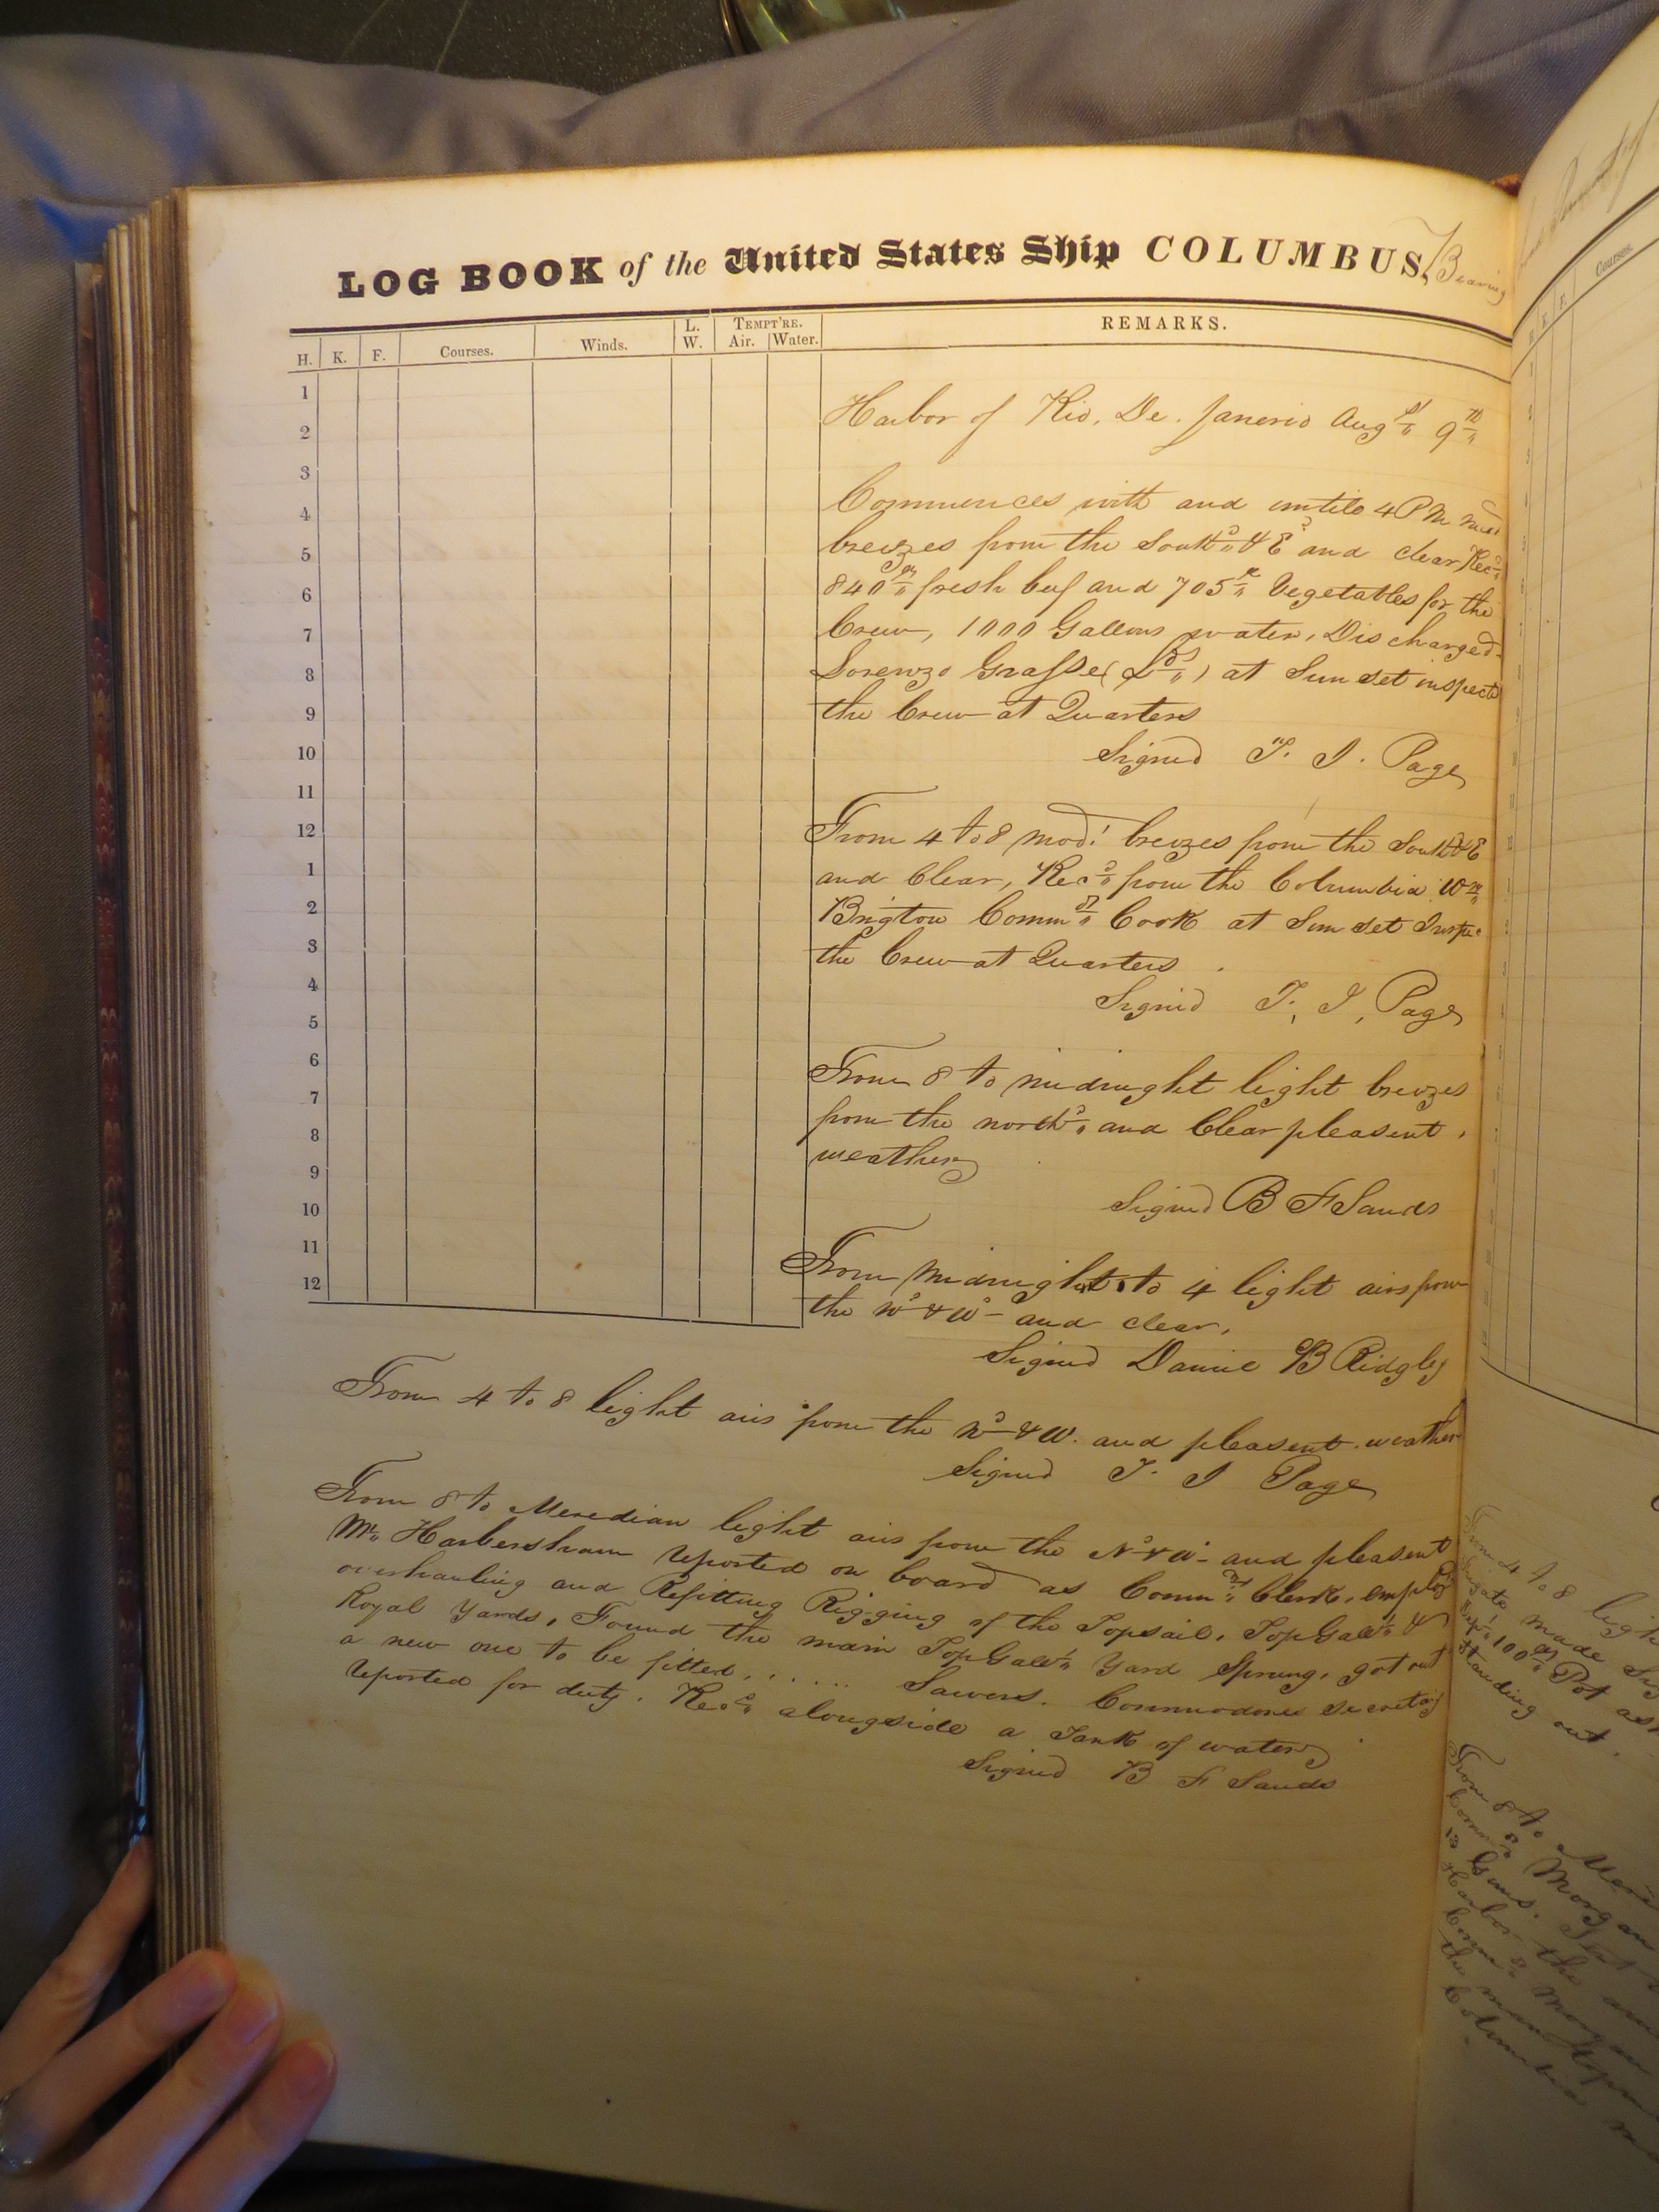 LOG BOOK of the United States Ship COLUMBUS, Bearing
H. K. F. Courses. Winds. L. W. TEMPT'RE. Air. Water. REMARKS.
1
2
3
4
5
6
7
8
9
10
11
12
1
2
3
4
5
6
7
8
9
10
11
12
Harbor of Rio, De. Janerio Augst 9th
Commences with and untile 4 PM mod
breezes from the Southd & Ed and clear Recd
840 fresh beef and 705 Vegetables for the
Crew, 1000 Gallons water, Discharged
Lorenzo Grasse (Lds) at Sun set inspected
the Crew at Quarters
Signed T. J. Page
From 4 to 8 modt breezes from the South & E
and Clear, Recd from the Columbia Wm
Brigton Commdr Cook at Sun set Inspec
the Crew at Quarters
Signed T. J. Page
From 8 to midnight light breezes
from the northd and Clear pleasent
weather
Signed B F Sands
From Midnight to 4 light airs from
the Nd & Wd and clear,
Signed Danie B Ridgley
From 4 to 8 light airs from the Nd & W. and pleasent weather
Signed T. J Page
From 8 to Meredian light airs from the Nd & Wd and pleasent
Mr. Harbersham reported on board as Commdr Clerk, employd
overhauling and Refitting Rigging of the Topsail, TopGallt &
Royal Yards, Found the main TopGallt Yard Sprung, got out
a new one to be fitted...... Sawers. Commodores Secretary
reported for duty. Recd alongside a Tank of water
Signed B F Sands
Courses.
From 4 to 8 light
made
100
standing out.
From 8 to Meri
Morgan
Guns.
Harbor the
the
Columbia